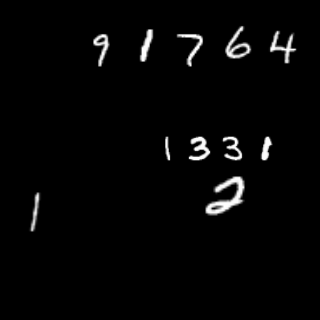 91764
1331
2
1